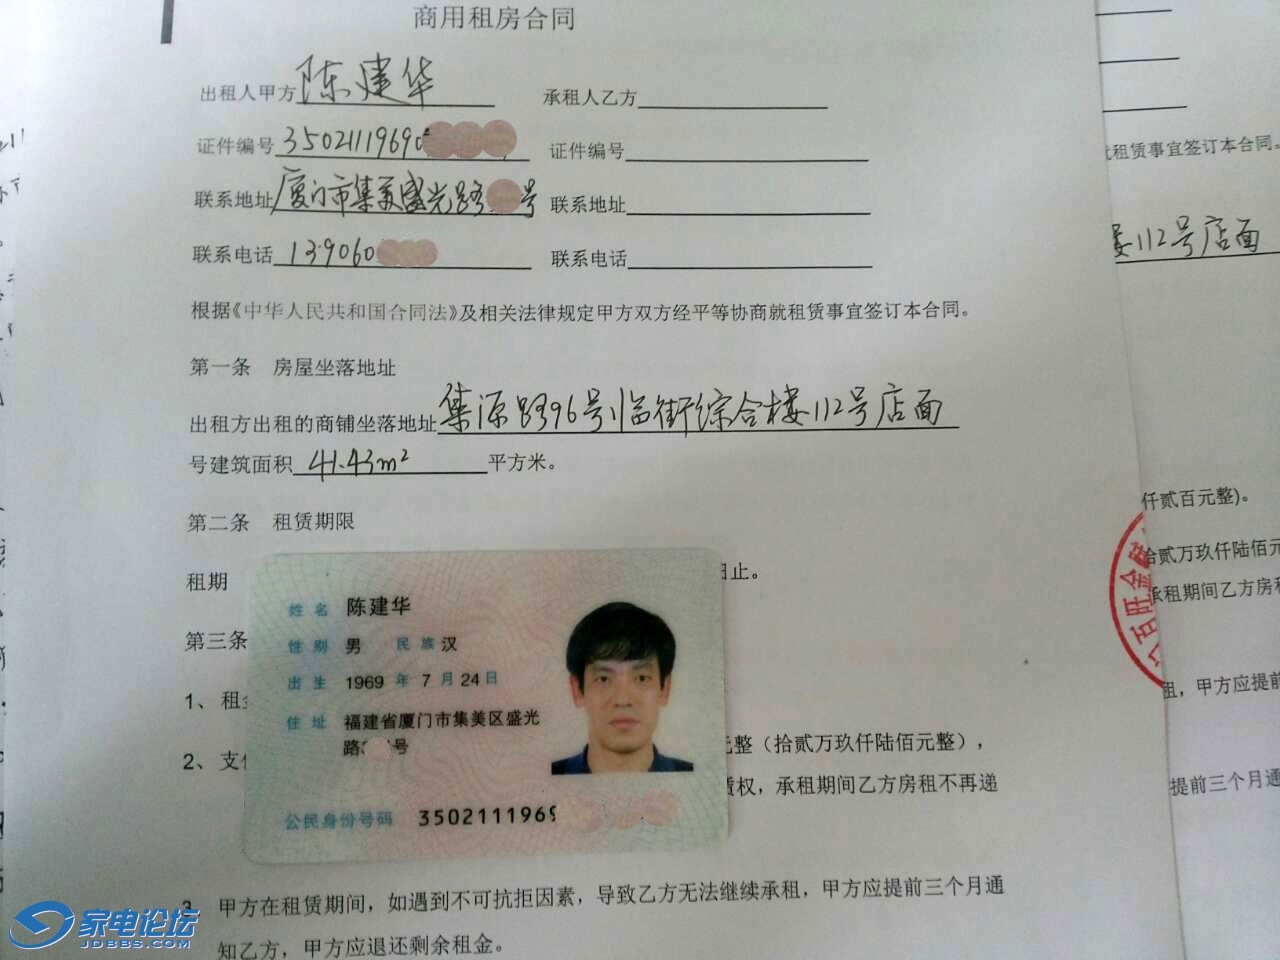 商用租房合同
出租人甲方 陈建华 承租人乙方
证件编号 3502111969 证件编号
联系地址 厦门市集美盛光路 号 联系地址
联系电话 139060 联系电话
根据《中华人民共和国合同法》及相关法律规定甲方双方经平等协商就租赁事宜签订本合同。
第一条 房屋坐落地址
出租方出租的商铺坐落地址 集源路96号临街综合楼112号店面
号建筑面积 41.43m² 平方米。
第二条 租赁期限
租期 日止。
第三条
1、租金
2、支付 元整（拾贰万玖仟陆佰元整），
赁权，承租期间乙方房租不再递
3 甲方在租赁期间，如遇到不可抗拒因素，导致乙方无法继续承租，甲方应提前三个月通
知乙方，甲方应退还剩余租金。
姓名 陈建华
性别 男 民族 汉
出生 1969 年 7 月 24 日
住址 福建省厦门市集美区盛光
路 号
公民身份号码 3502111969
租赁事宜签订本合同。
楼112号店面
仟贰百元整)。
拾贰万玖仟陆佰元
承租期间乙方房租
租，甲方应提前
提前三个月通
门百旺金
家电论坛
JDBBS.COM